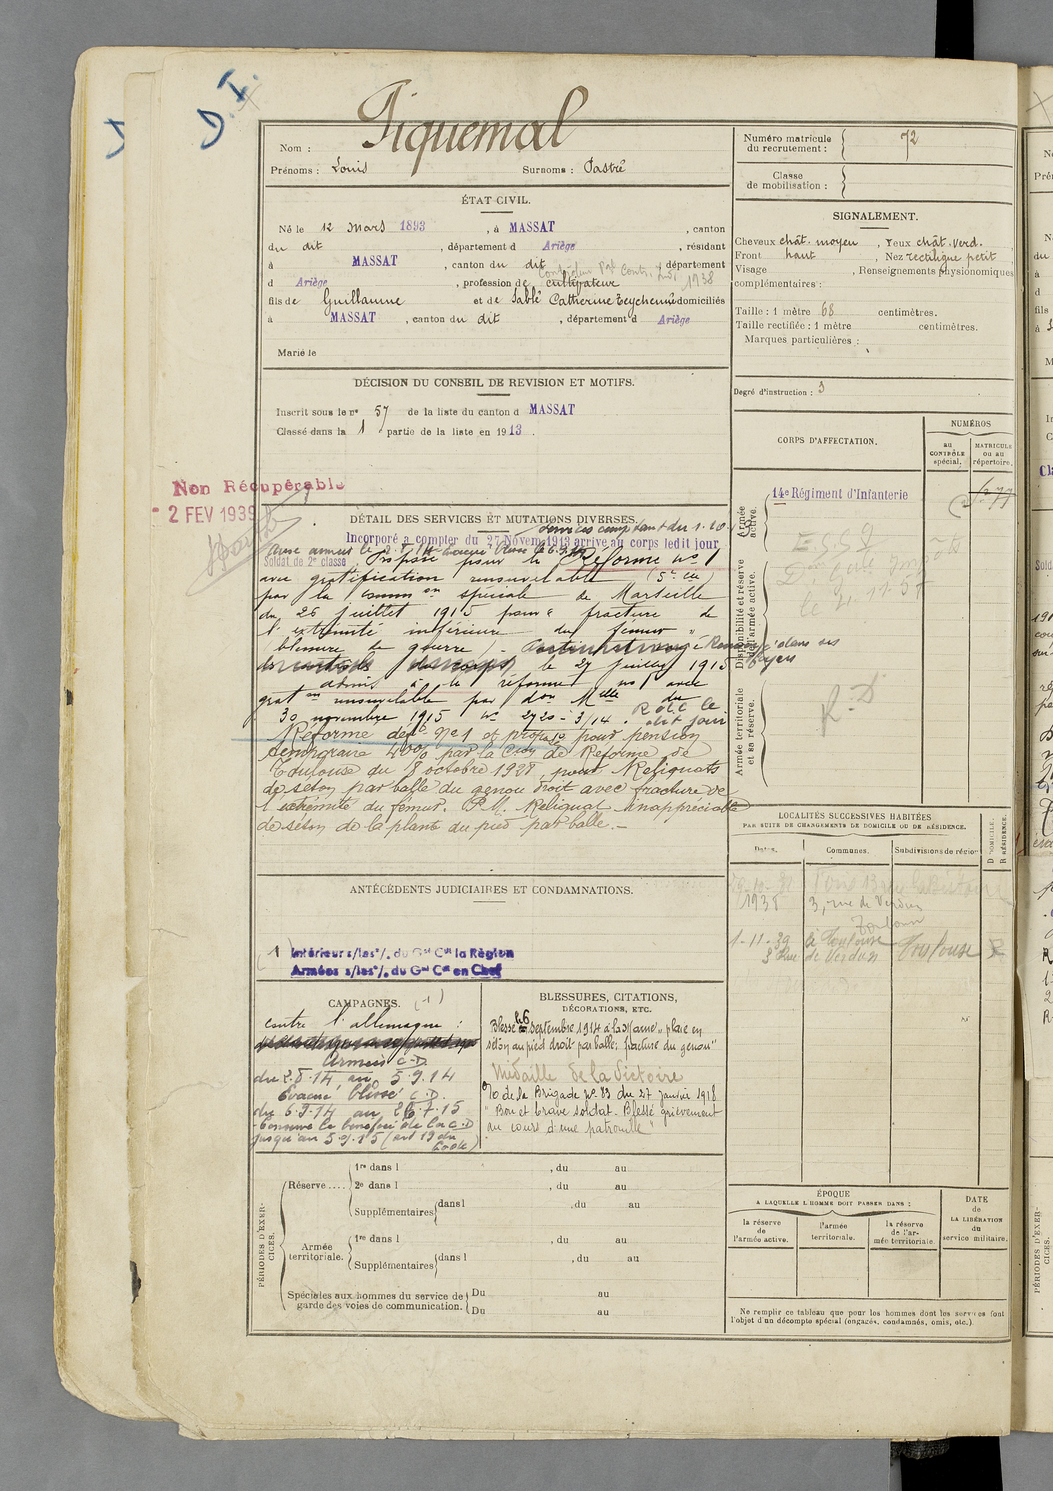 D. I.
Nom : Piquemal
Prénoms : Louis Surnoms : Pastré
Numéro matricule du recrutement : 72
Classe de mobilisation :
ÉTAT CIVIL.
Né le 12 Mars 1893, à MASSAT, canton
du dit, département d Ariège, résidant
à MASSAT, canton du dit, département
d Ariège, profession de cultivateur
1938
fils de Guillaume et de Sablé Catherine Teychenné domiciliés
à MASSAT, canton du dit, département d Ariège
Marié le
SIGNALEMENT.
Cheveux chât. moyen, Yeux chât. verd.
Front haut, Nez rectiligne petit
Visage , Renseignements physionomiques
complémentaires :
Taille : 1 mètre 68 centimètres.
Taille rectifiée : 1 mètre centimètres.
Marques particulières :
Degré d'instruction : 3
DÉCISION DU CONSEIL DE REVISION ET MOTIFS.
Inscrit sous le n° 57 de la liste du canton d MASSAT
Classé dans la 1 partie de la liste en 1913.
Non Récupérable
2 FEV 1939
CORPS D'AFFECTATION.
NUMÉROS
au CONTRÔLE spécial.
MATRICULE ou au répertoire.
Armée active.
14e Régiment d'Infanterie
Disponibilité et réserve de l'armée active.
Armée territoriale et sa réserve.
R. D
DÉTAIL DES SERVICES ET MUTATIONS DIVERSES.
Incorporé à compter du 27 Novem 1913 arrivé au corps ledit jour
Soldat de 2e classe. Proposé pour la Réforme N° 1
avec gratification renouvelable (5e cie)
par la Comm on spéciale de Marseille
du 26 juillet 1915 pour " fracture de
l'extrémité inférieure du fémur "
blessure de guerre. Renvoyé dans ses foyers
le 27 juillet 1915
admis à la réforme n° 1 avec
grat on renouvelable par d on M elle du
30 novembre 1915 N° 2720-3/14. R d C le dit jour
Réforme défve N° 1 et propo on pour pension
temporaire 40% par la C on de Réforme de
Toulouse du 8 octobre 1928, pour Reliquats
de séton par balle du genou droit avec fracture de
l'extrémité du fémur. P.M. Reliquat inappréciable
de séton de la plante du pied par balle.-
LOCALITÉS SUCCESSIVES HABITÉES
PAR SUITE DE CHANGEMENTS DE DOMICILE OU DE RÉSIDENCE.
Dates. Communes. Subdivisions de région
D DOMICILE. R RÉSIDENCE.
1938 3, rue de Verdun
Toulouse
1-11-39 Toulouse Toulouse R
3 Rue de Verdun
ANTÉCÉDENTS JUDICIAIRES ET CONDAMNATIONS.
(1) Intérieur s/les o/. du Gal Ct la Région
Armées s/les o/. du Gal Ct en Chef
CAMPAGNES. (1)
contre l'allemagne :
Armées C.D.
du 2.8.14 au 5.9.14
Evacué blessé C.D.
du 6.9.14 au 26.7.15
Conserve le bénéfice de la C.D
jusqu'au 5.9.15 (art 19 du Code)
BLESSURES, CITATIONS,
DÉCORATIONS, ETC.
Blessé le 6 septembre 1914 à la Marne, plaie en
séton au pied droit par balle, fracture du genou"
Médaille de la Victoire
O de la Brigade N° 83 du 27 Janvier 1918
" Bon et brave soldat. Blessé grièvement
au cours d'une patrouille"
PÉRIODES D'EXERCICES.
Réserve.... 1re dans l , du au
2e dans l , du au
Supplémentaires dans l , du au
Armée territoriale. 1re dans l , du au
Supplémentaires dans l , du au
Spéciales aux hommes du service de garde des voies de communication. Du au
Du au
ÉPOQUE
A LAQUELLE L'HOMME DOIT PASSER DANS :
la réserve de l'armée active.
l'armée territoriale.
la réserve de l'armée territoriale.
DATE DE LA LIBÉRATION du service militaire.
Ne remplir ce tableau que pour les hommes dont les services font
l'objet d'un décompte spécial (engagés, condamnés, omis, etc.).